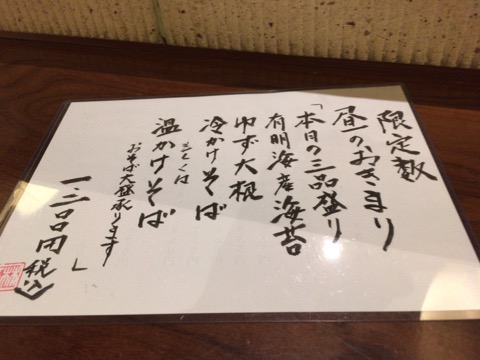 限定数
昼のおきまり
「本日の三品盛り
有明海産海苔
ゆず大根
冷かけそば
もしくは
温かけそば
おそば大盛承ります
」
一、二〇〇円税込